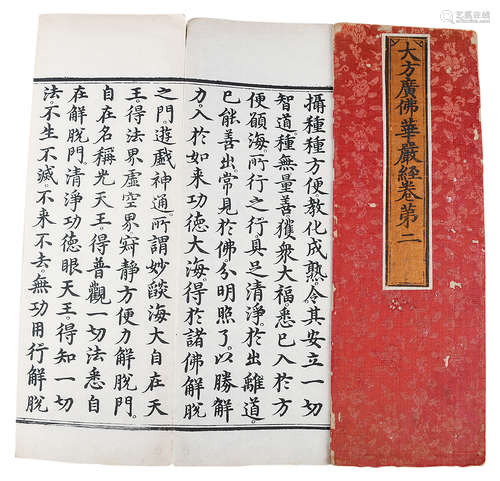 大方廣佛華嚴經卷第二
攝種種方便教化成熟。令其安立一切
智道。種無量善。獲衆大福。悉已入於方
便願海。所行之行。具足清淨。於出離道。
已能善出。常見於佛。分明照了。以勝解
力。入於如来功德大海。得於諸佛解脫
之門。遊戲神通。所謂妙燄海大自在天
王。得法界虛空界寂靜方便力解脫門。
自在名稱光天王。得普觀一切法悉自
在解脫門。清淨功德眼天王。得知一切
法。不生不滅。不来不去。無功用行解脫